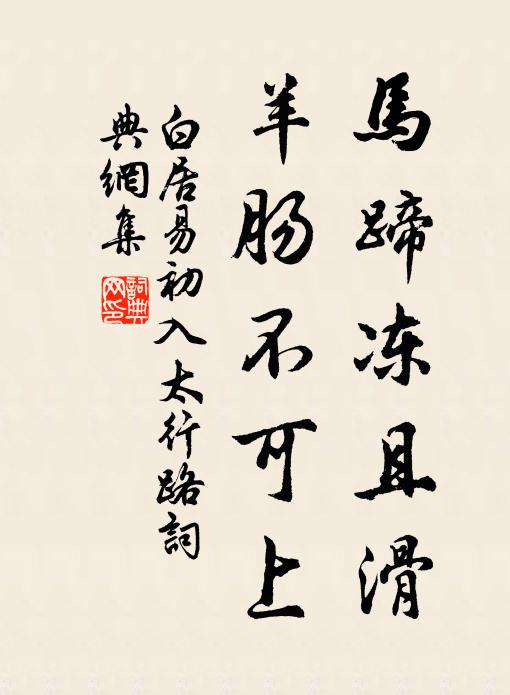 馬蹄冻且滑
羊肠不可上
白居易初入太行路詞
典網集
詞典
网印